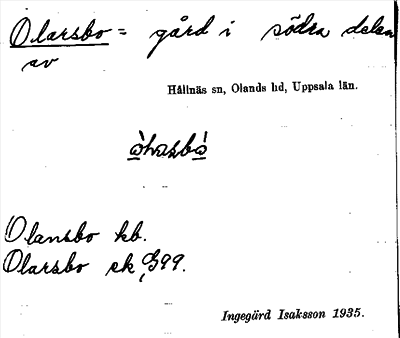 Olarsbo = gård i södra delen
av
Hållnäs sn, Olands hd, Uppsala län.
Olansbo kb.
Olarsbo ek, G99.
Ingegärd Isaksson 1935.